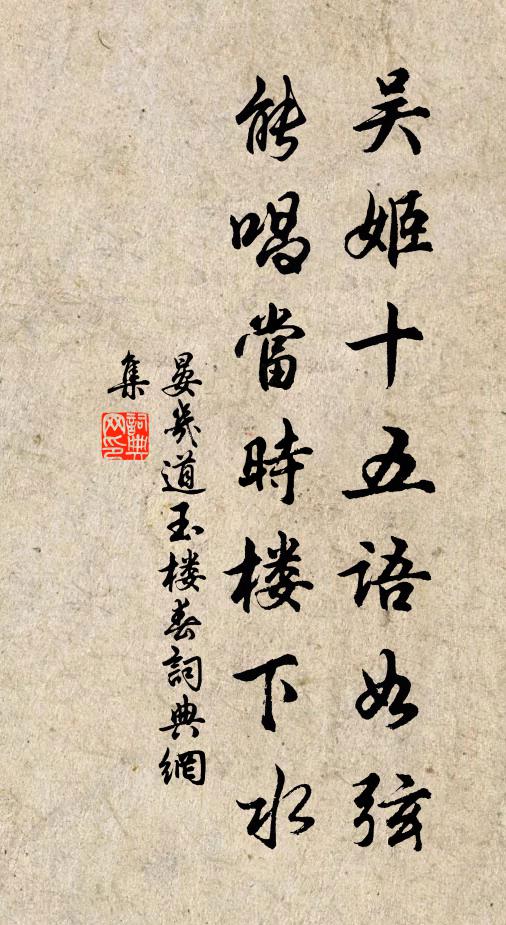 吴姬十五语如弦
能唱當時楼下水
晏幾道玉楼春詞典網
集
詞典网印